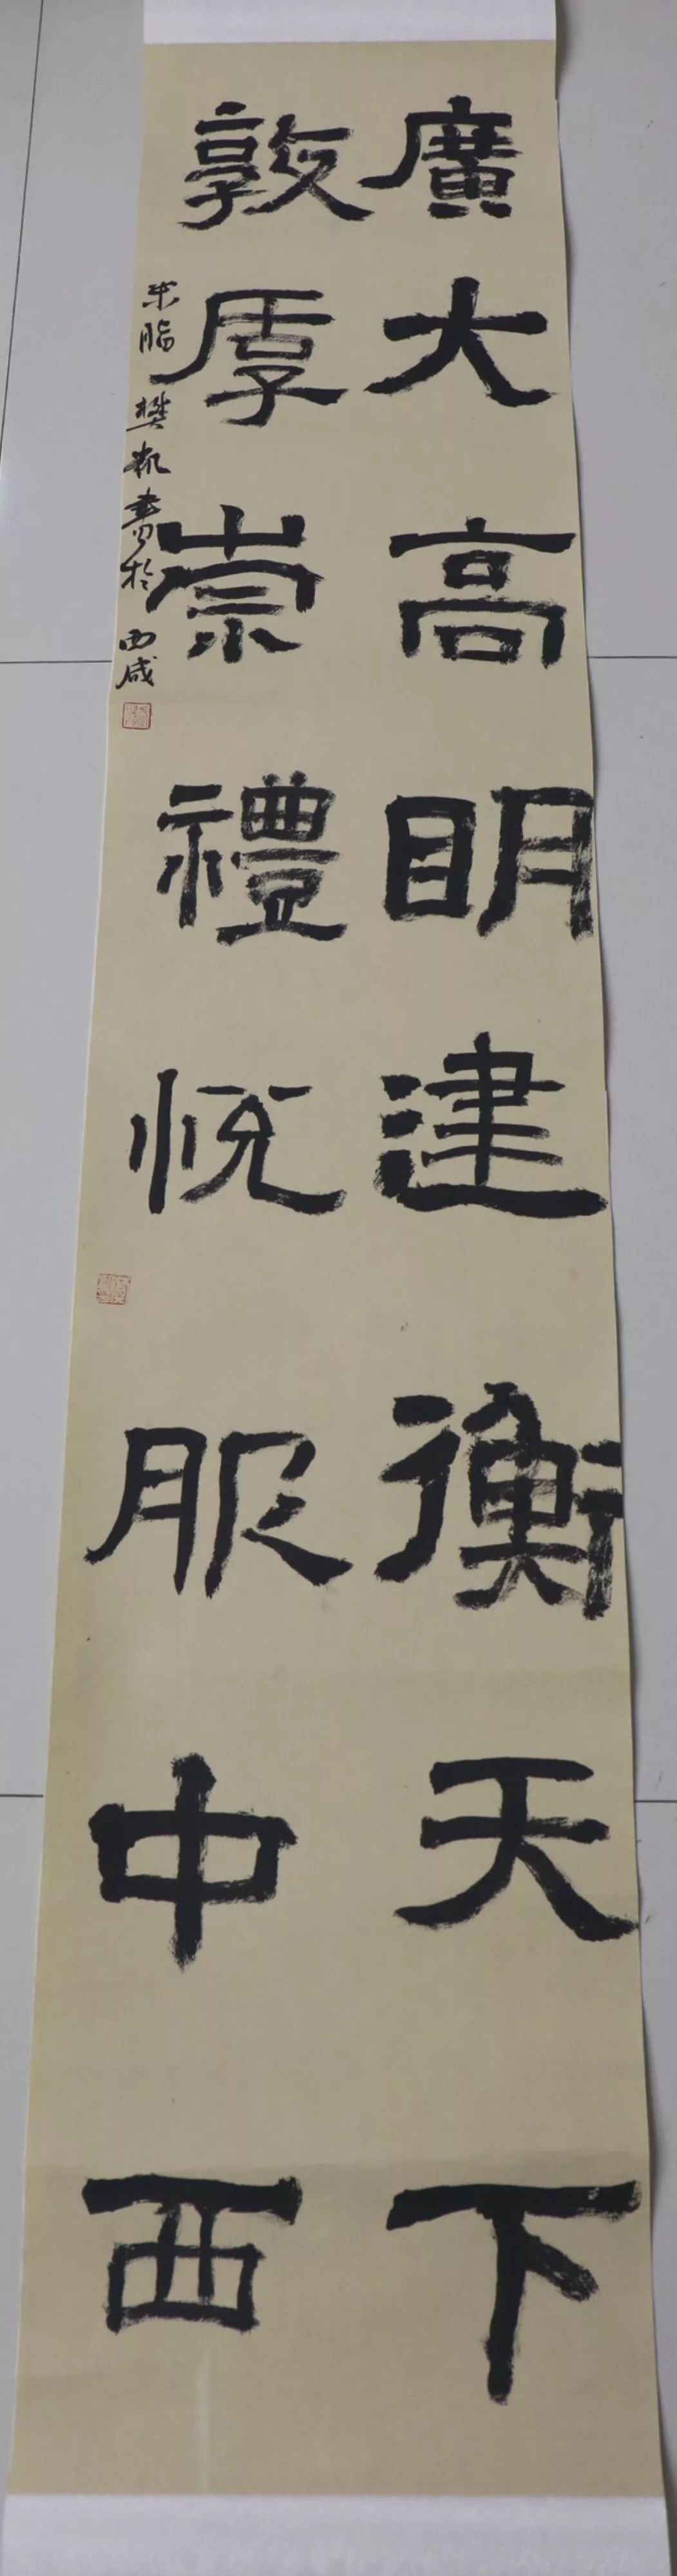 廣大高明建衡天下
敦厚崇禮悦服中西
米脂樊凯書於西咸